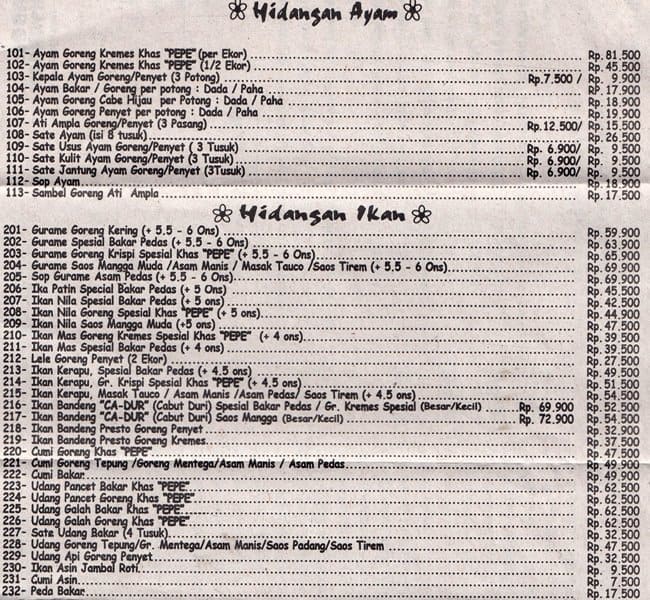 Hidangan Ayam
101- Ayam Goreng Kremes Khas "PEPE" (per Ekor) Rp. 81.500
102- Ayam Goreng Kremes Khas "PEPE" (1/2 Ekor) Rp. 45.500
103- Kepala Ayam Goreng/Penyet (3 Potong) Rp.7.500 / Rp. 9.900
104- Ayam Bakar / Goreng per potong : Dada / Paha Rp. 17.900
105- Ayam Goreng Cabe Hijau per Potong : Dada / Paha Rp. 18.900
106- Ayam Goreng Penyet per potong : Dada / Paha Rp. 19.900
107- Ati Ampla Goreng/Penyet (3 Pasang) Rp.12.500/ Rp. 15.500
108- Sate Ayam (isi 8 tusuk) Rp. 26.500
109- Sate Usus Ayam Goreng/Penyet ( 3 Tusuk) Rp. 6.900/ Rp. 9.500
110- Sate Kulit Ayam Goreng/Penyet (3 Tusuk) Rp. 6.900/ Rp. 9.500
111- Sate Jantung Ayam Goreng/Penyet (3Tusuk) Rp. 6.900/ Rp. 9.500
112- Sop Ayam Rp. 18.900
113- Sambel Goreng Ati Ampla Rp. 17.500
Hidangan Ikan
201- Gurame Goreng Kering (+ 5.5 - 6 Ons) Rp. 59.900
202- Gurame Spesial Bakar Pedas (+ 5.5 - 6 Ons) Rp. 63.900
203- Gurame Goreng Krispi Spesial Khas "PEPE" (+ 5.5 - 6 Ons) Rp. 65.900
204- Gurame Saos Mangga Muda /Asam Manis / Masak Tauco /Saos Tirem (+ 5.5 - 6 Ons) Rp. 69.900
205- Sop Gurame Asam Pedas (+ 5.5 - 6 Ons) Rp. 69.900
206- Ika Patin Special Bakar Pedas (+ 5 Ons) Rp. 45.500
207- Ikan Nila Spesial Bakar Pedas (+ 5 ons) Rp. 42.500
208- Ikan Nila Goreng Spesial Khas "PEPE" (+ 5 ons) Rp. 44.900
209- Ikan Nila Saos Mangga Muda (+5 ons) Rp. 47.500
210- Ikan Mas Goreng Kremes Spesial Khas "PEPE" (+ 4 ons) Rp. 39.500
211- Ikan Mas Spesial Bakar Pedas (+ 4 ons) Rp. 39.500
212- Lele Goreng Penyet (2 Ekor) Rp. 27.500
213- Ikan Kerapu, Spesial Bakar Pedas (+ 4.5 ons) Rp. 49.500
214- Ikan Kerapu, Gr. Krispi Spesial Khas "PEPE" (+ 4.5 ons) Rp. 51.500
215- Ikan Kerapu, Masak Tauco / Asam Manis /Asam Pedas/ Saos Tirem (+ 4.5 ons) Rp. 54.500
216- Ikan Bandeng "CA-DUR" (Cabut Duri) Spesial Bakar Pedas / Gr. Kremes Spesial (Besar/Kecil) Rp. 69.900 Rp. 52.500
217- Ikan Bandeng "CA-DUR" (Cabut Duri) Saos Mangga (Besar/Kecil) Rp. 72.900 Rp. 54.500
218- Ikan Bandeng Presto Goreng Penyet Rp. 32.900
219- Ikan Bandeng Presto Goreng Kremes Rp. 37.500
220- Cumi Goreng Khas "PEPE" Rp. 47.500
221- Cumi Goreng Tepung /Goreng Mentega/Asam Manis / Asam Pedas Rp. 49.900
222- Cumi Bakar Rp. 49.900
223- Udang Pancet Bakar Khas "PEPE" Rp. 62.500
224- Udang Pancet Goreng Khas "PEPE" Rp. 62.500
225- Udang Galah Bakar Khas "PEPE" Rp. 62.500
226- Udang Galah Goreng Khas "PEPE" Rp. 62.500
227- Sate Udang Bakar (4 Tusuk) Rp. 32.500
228- Udang Goreng Tepung/Gr. Mentega/Asam Manis/Saos Padang/Saos Tirem Rp. 47.500
229- Udang Api Goreng Penyet Rp. 32.500
230- Ikan Asin Jambal Roti Rp. 9.500
231- Cumi Asin Rp. 7.500
232- Peda Bakar Rp. 17.500